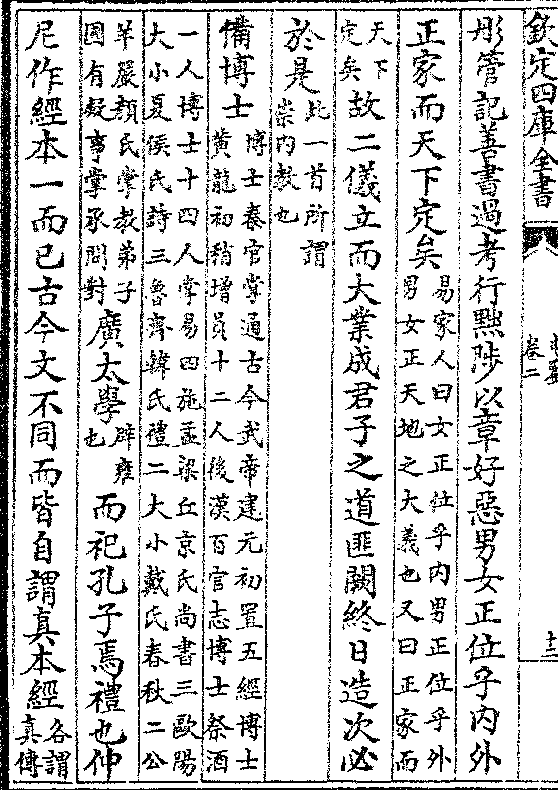 欽定四庫全書
卷二
十三
彤管記善書過考行黜陟以章好惡男女正位乎内外
正家而天下定矣
易家人曰女正位乎内男正位乎外
男女正天地之大義也又曰正家而
天下
定矣
故二儀立而大業成君子之道匪闕終日造次必
於是
此一首所謂
崇内教也
備博士
博士秦官掌通古今武帝建元初置五經博士
黄龍初稍增員十二人後漢百官志博士祭酒
一人博士十四人掌易四施孟梁丘京氏尚書三歐陽
大小夏侯氏詩三魯齊韓氏禮二大小戴氏春秋二公
羊嚴顔氏掌教弟子
國有疑事掌承問對
廣太學
辟雍
也
而祀孔子焉禮也仲
尼作經本一而已古今文不同而皆自謂真本經
各謂
真傳